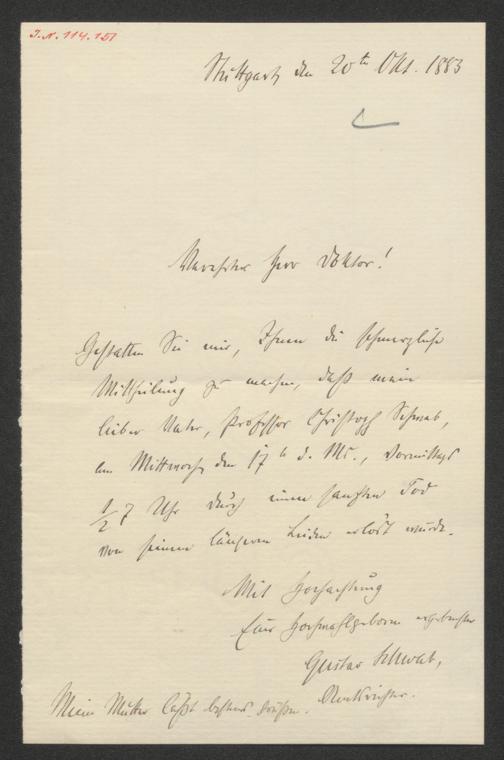 J.N. 114.151
Stuttgart, den 20ten Okt. 1883
Verehrter Herr Doktor!
Gestatten Sie mir, Ihnen die schmerzliche
Mittheilung zu machen, daß mein
lieber Vater, Professor Christoph Schwab,
am Mittwoch, den 17ten d. Mts., Vormittags
1/2 7 Uhr durch einen sanften Tod
von seinem längeren Leiden erlöst wurde.
Mit Hochachtung
Euer Hochwohlgeboren ergebenster
Gustav Schwab,
Amtsrichter.
Meine Mutter läßt bestens grüßen.